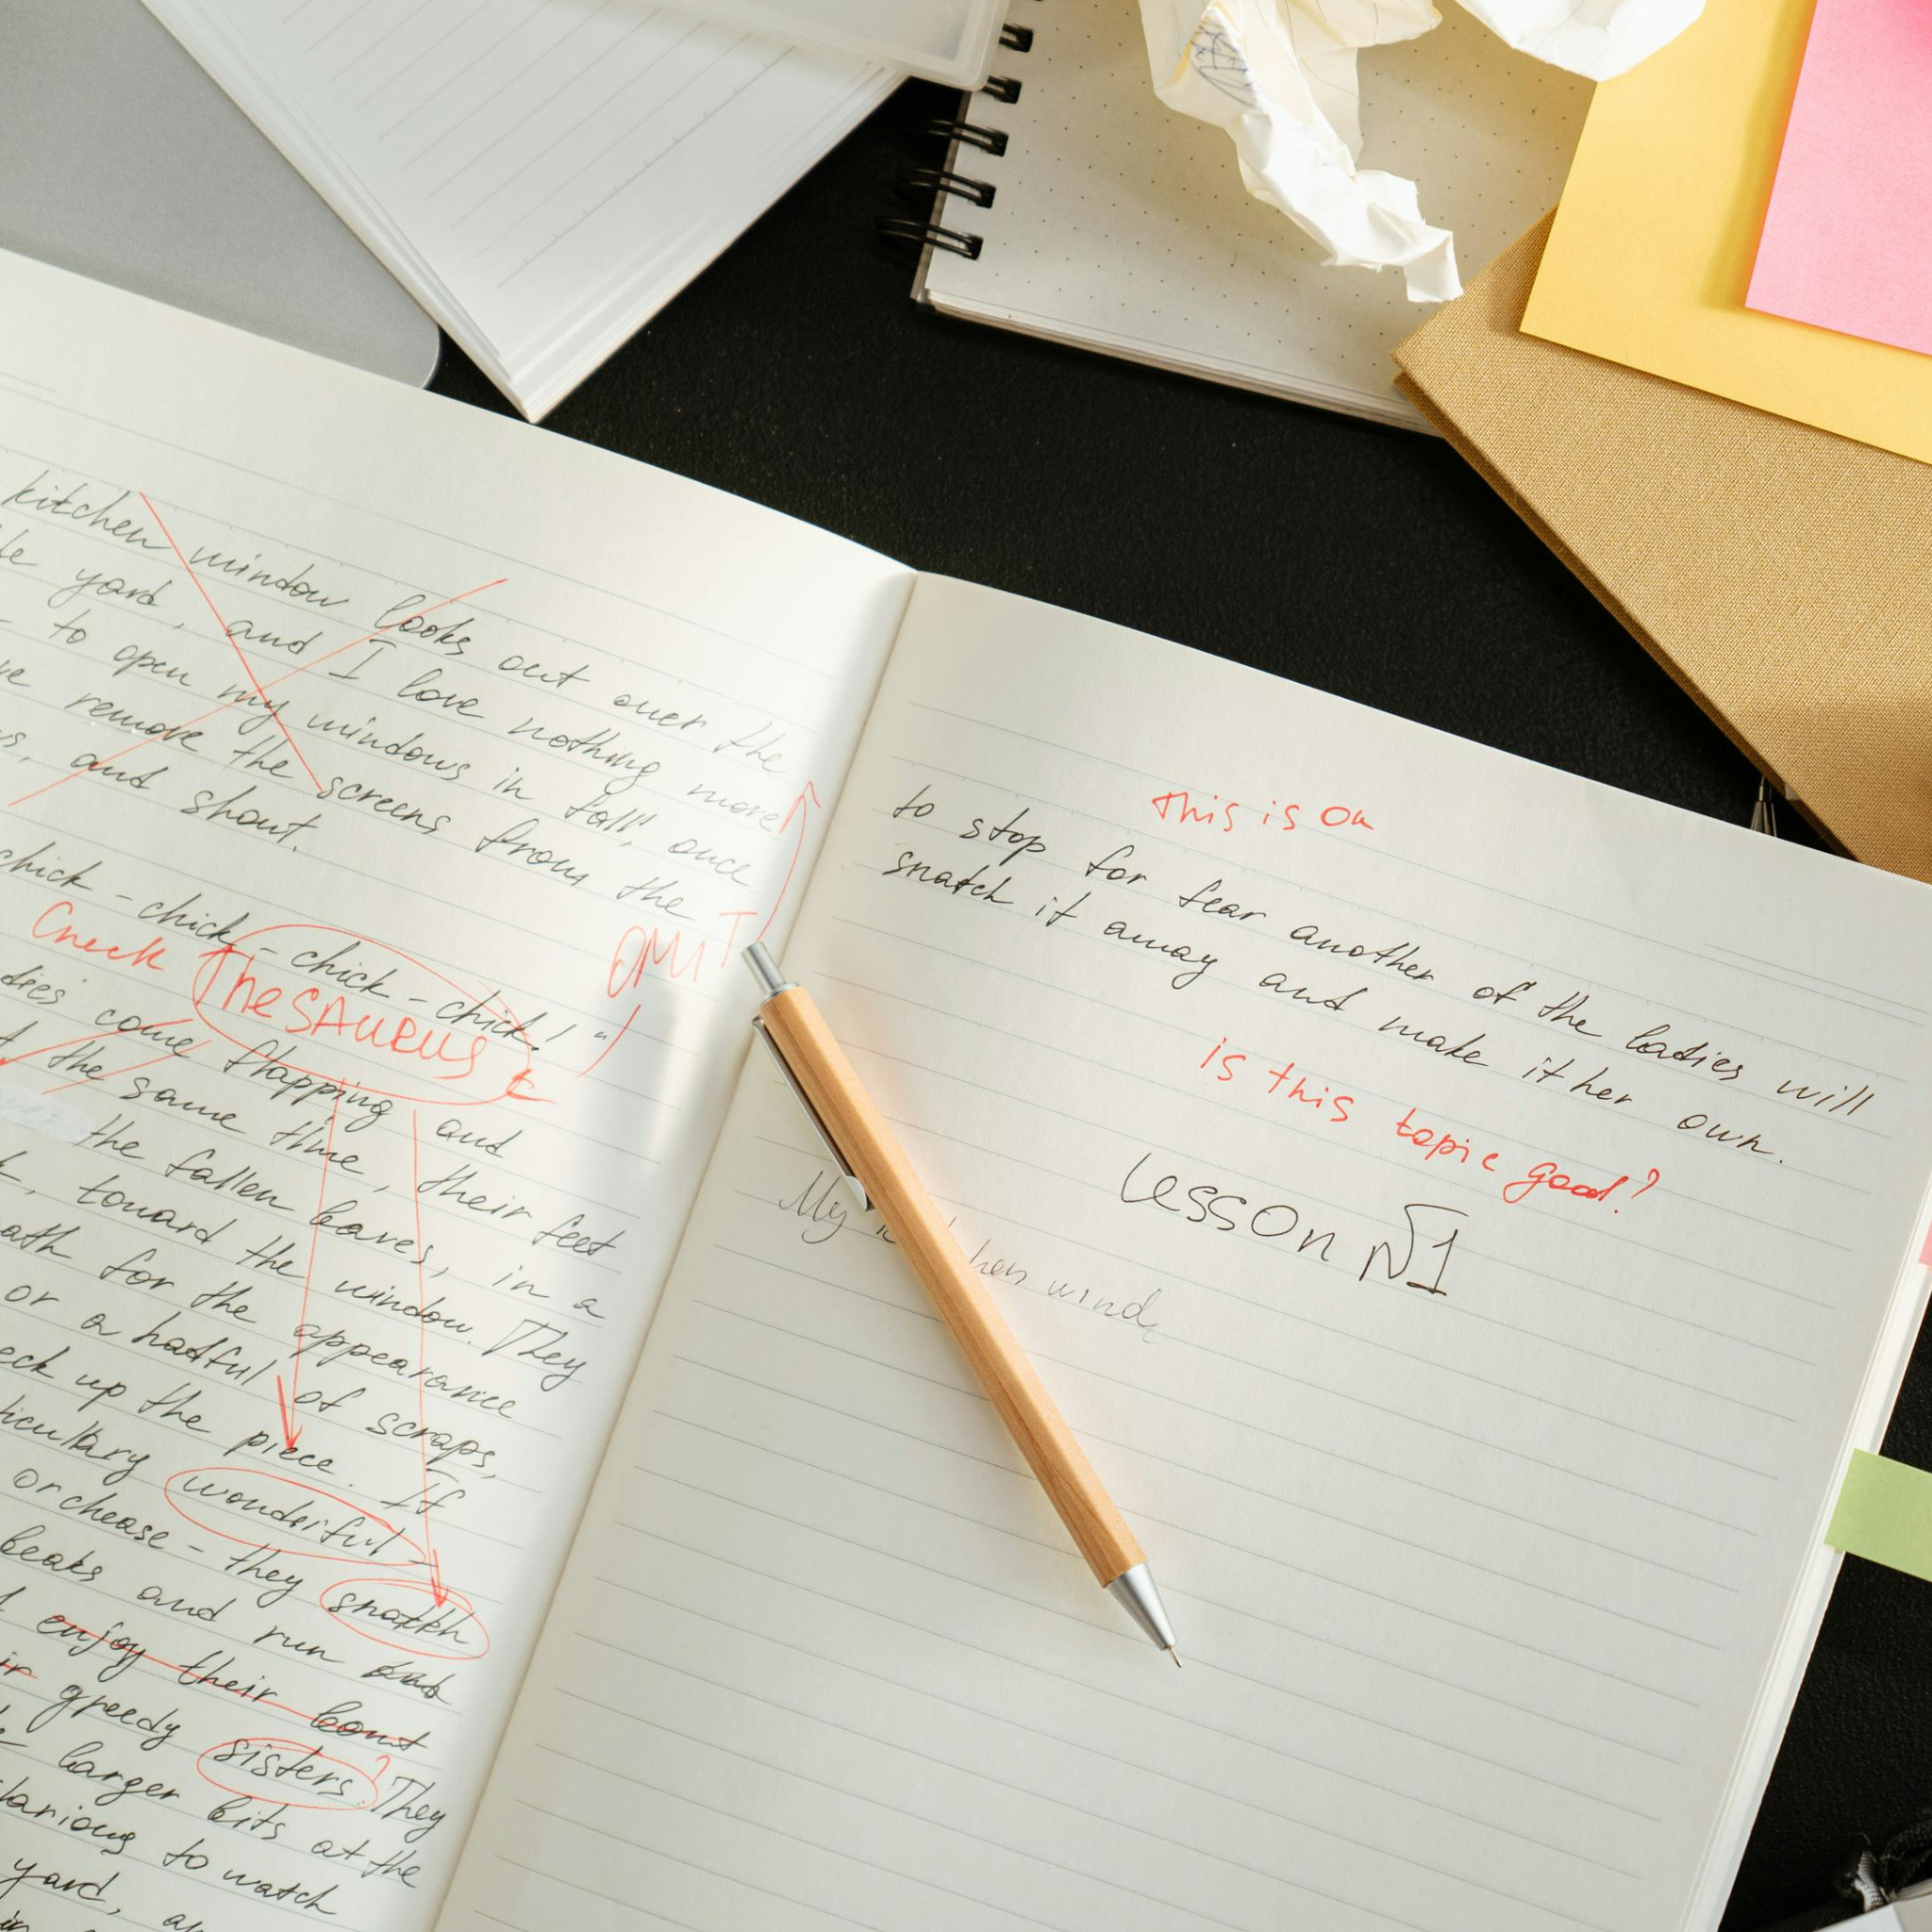 kitchen window looks out over the
yard, and I love nothing more
to open my windows in fall, once
remove the screens from the
and shout.
chick-chick-chick-chick!"
OMIT
Check
ThesAuRus
come flapping and
the same time, their feet
the fallen leaves, in a
toward the window. They
for the appearance
or a hatful of scraps,
up the piece. If
wonderful-
or chease - they snatch
beaks and run
enjoy their
greedy sisters? They
larger bits at the
to watch
yard,
This is Ok
to stop for fear another of the ladies will
snatch it away and make it her own.
is this topic good?
Lesson №1
My hen wind